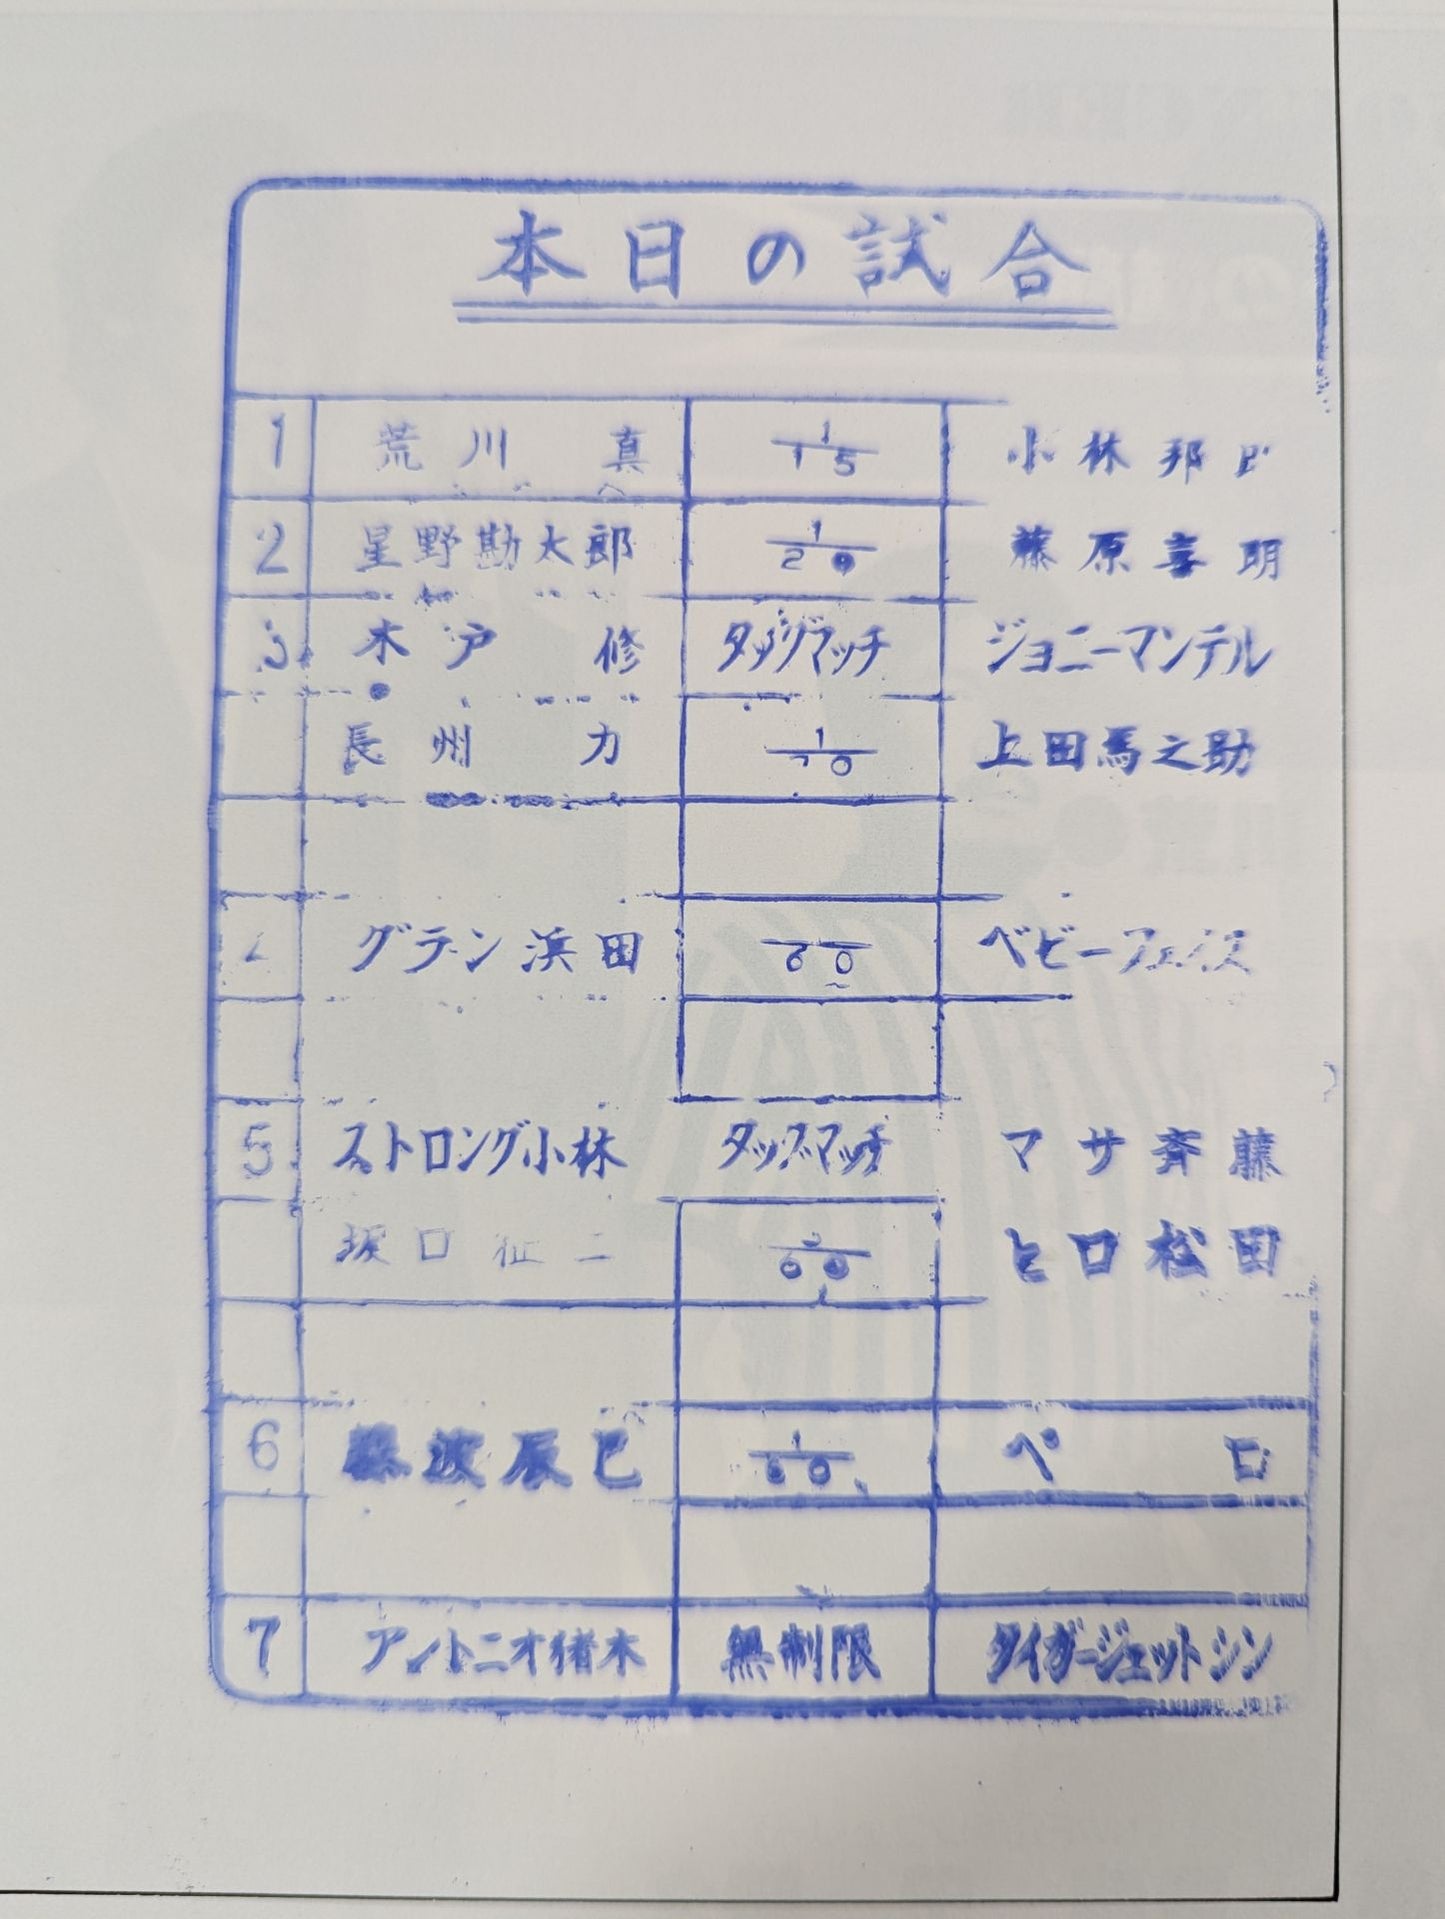 本日の試合
1 荒川真 1/15 小林邦
2 星野勘太郎 1/20 藤原喜明
3 木戸修 タッグマッチ ジョニーマンテル
長州力 1/ 0 上田馬之助
グラン浜田 60 ベビーフェイス
5 ストロング小林 タッグマッチ マサ斉藤
坂口征二 60 ヒロ松田
6 藤波辰巳 1/60 ペロ
7 アントニオ猪木 無制限 タイガージェットシン